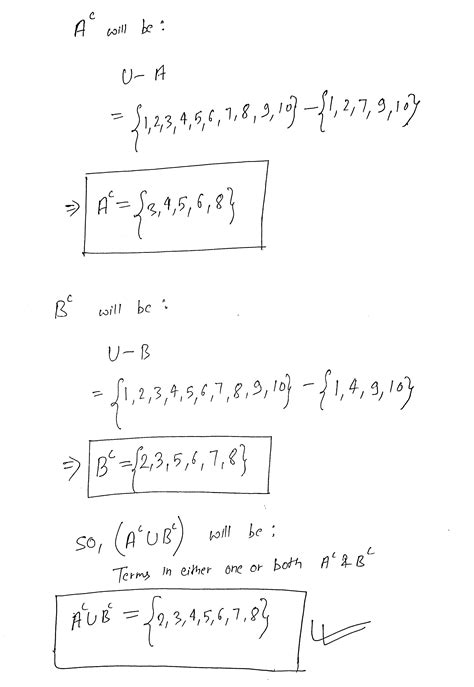 Aᶜ will be :
U - A
= {1,2,3,4,5,6,7,8,9,10} - {1,2,7,9,10}
⇒ Aᶜ = {3,4,5,6,8}
Bᶜ will be :
U - B
= {1,2,3,4,5,6,7,8,9,10} - {1,4,9,10}
⇒ Bᶜ = {2,3,5,6,7,8}
so, (Aᶜ ∪ Bᶜ) will be ;
Terms in either one or both Aᶜ & Bᶜ
Aᶜ ∪ Bᶜ = {2,3,4,5,6,7,8}